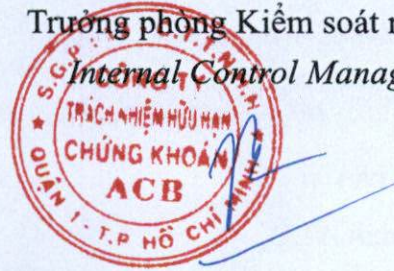 Trưởng phòng Kiểm soát
Internal Control Manag
CÔNG TY
TRÁCH NHIỆM HỮU HẠN
CHỨNG KHOÁN
ACB
QUẬN 1 - T.P HỒ CHÍ MINH